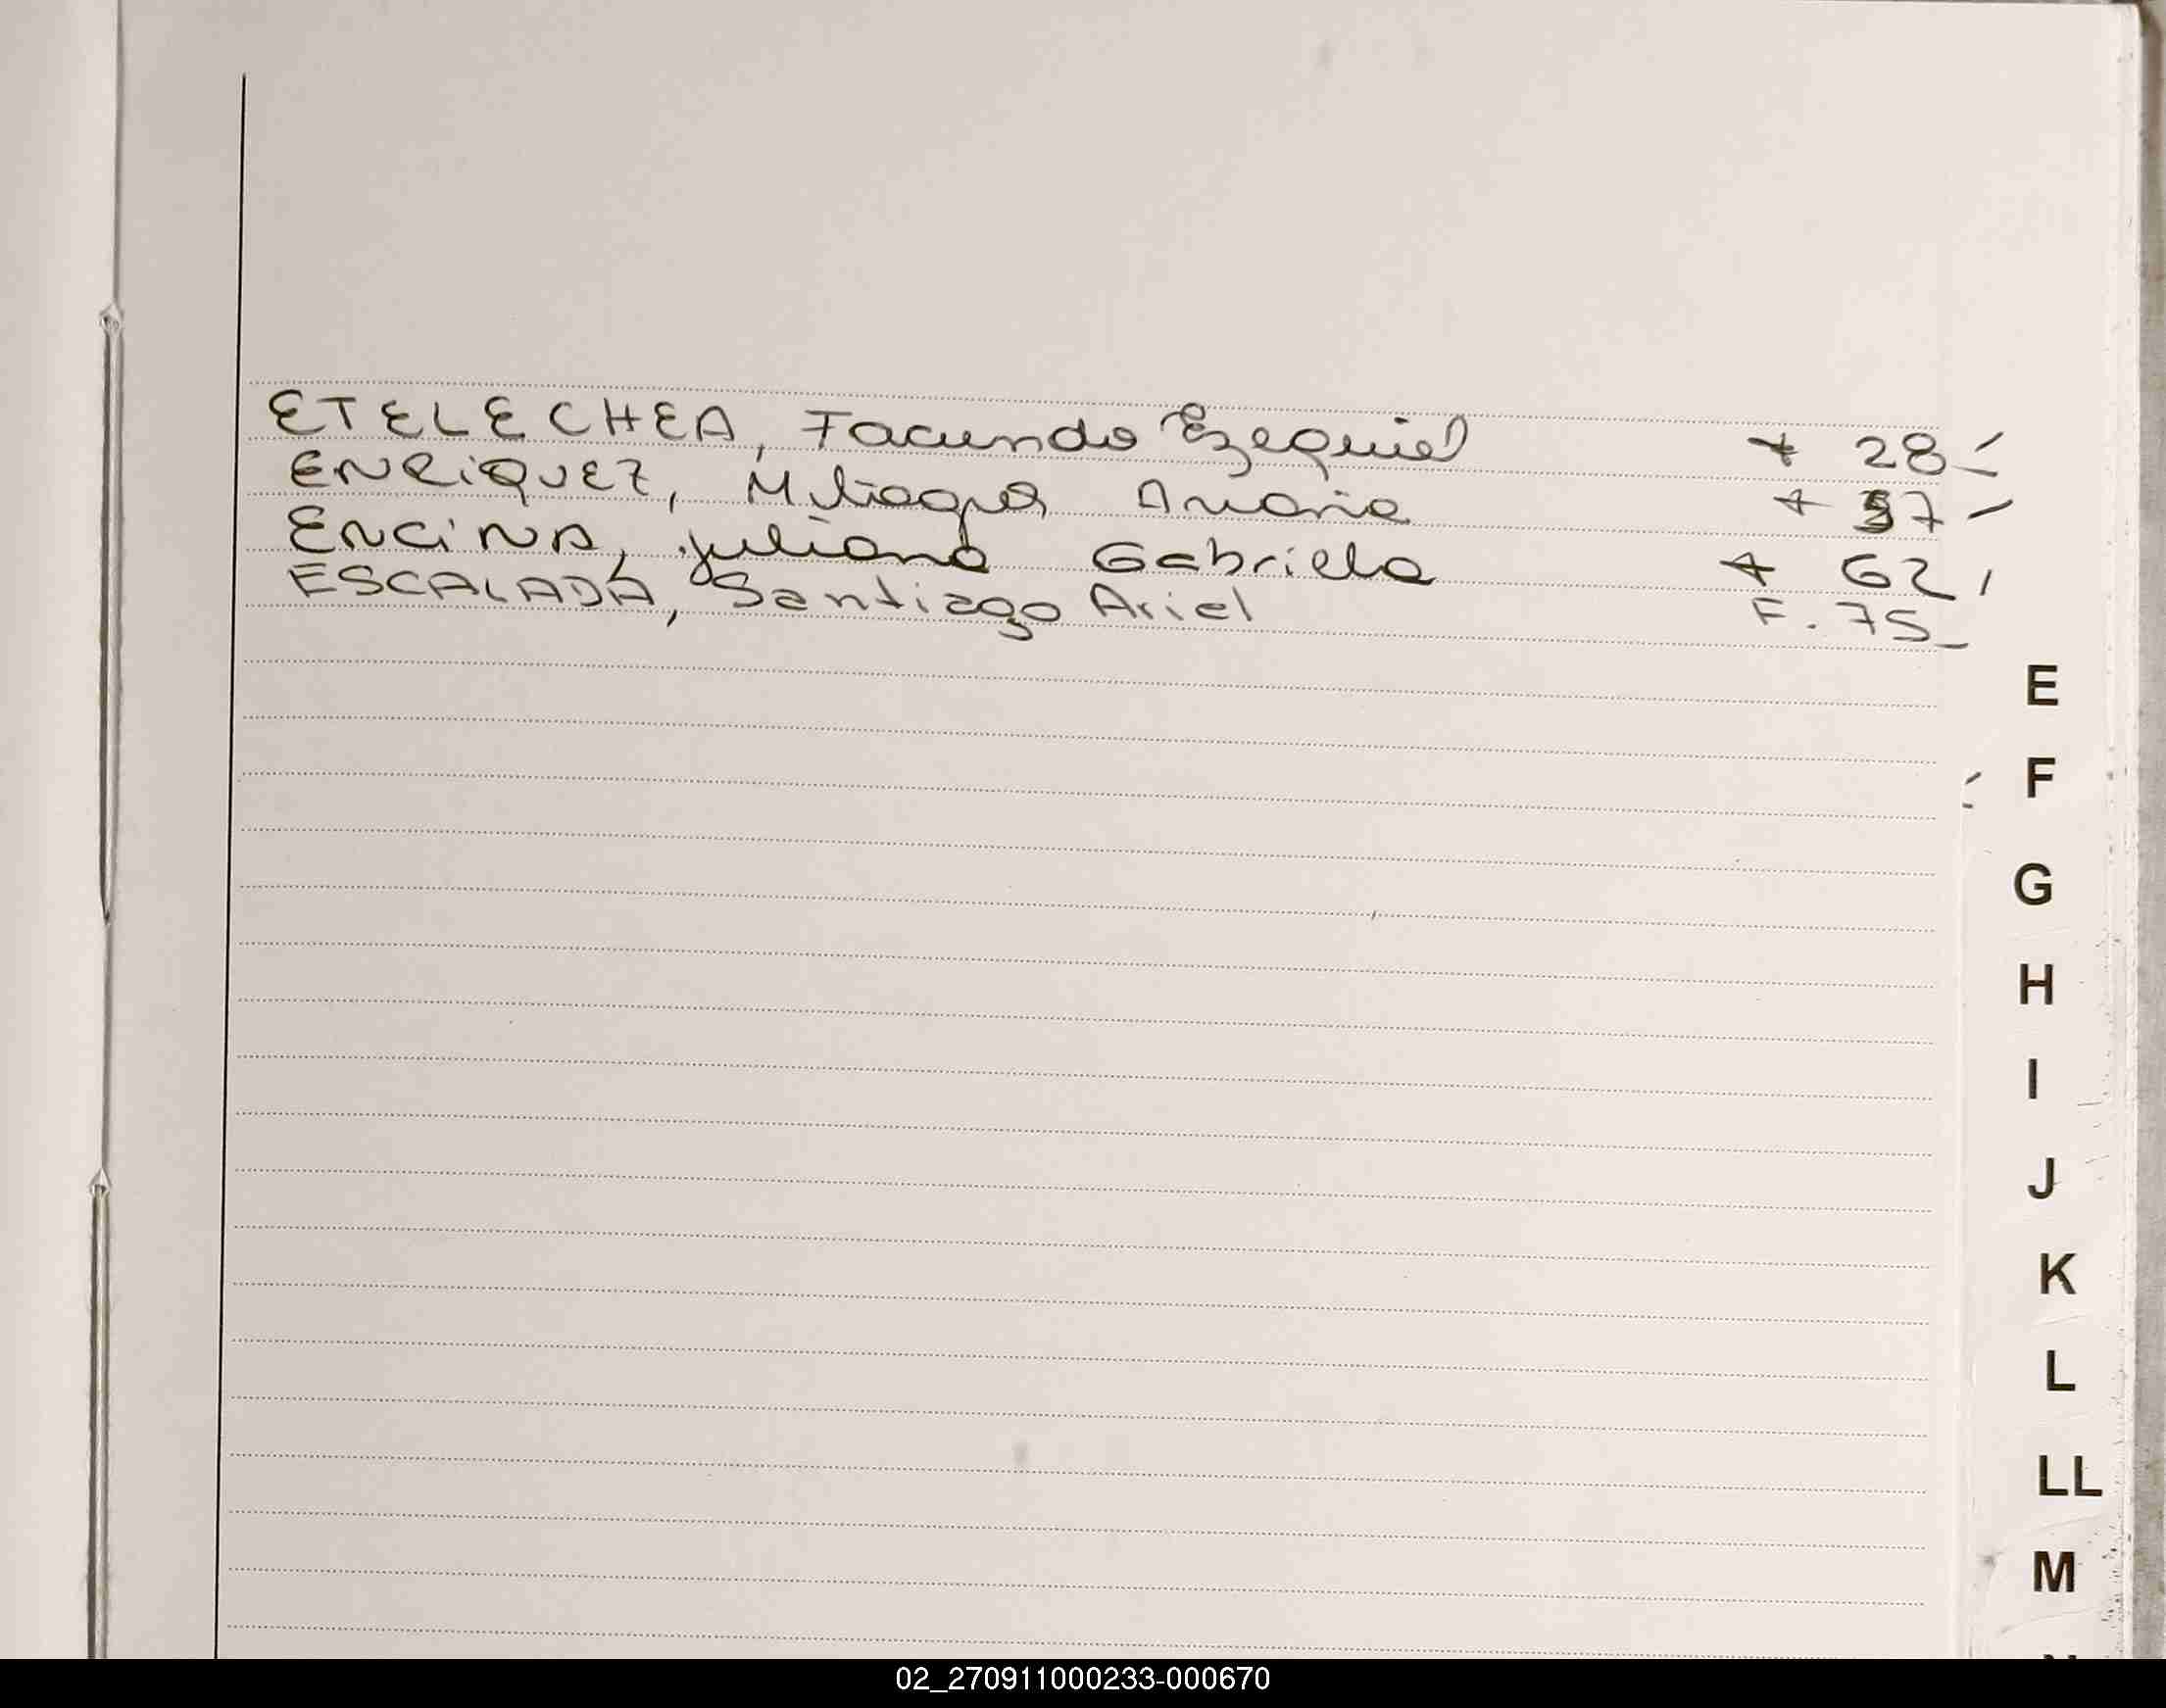 ETELECHEA, Facundo Ezequiel F 28
ENRIQUEZ, Milagros F 37
ENCINA, Juliana Gabriela F 62
ESCALADA, Santiago Ariel F. 75
E
F
G
H
I
J
K
L
LL
M
02_270911000233-000670